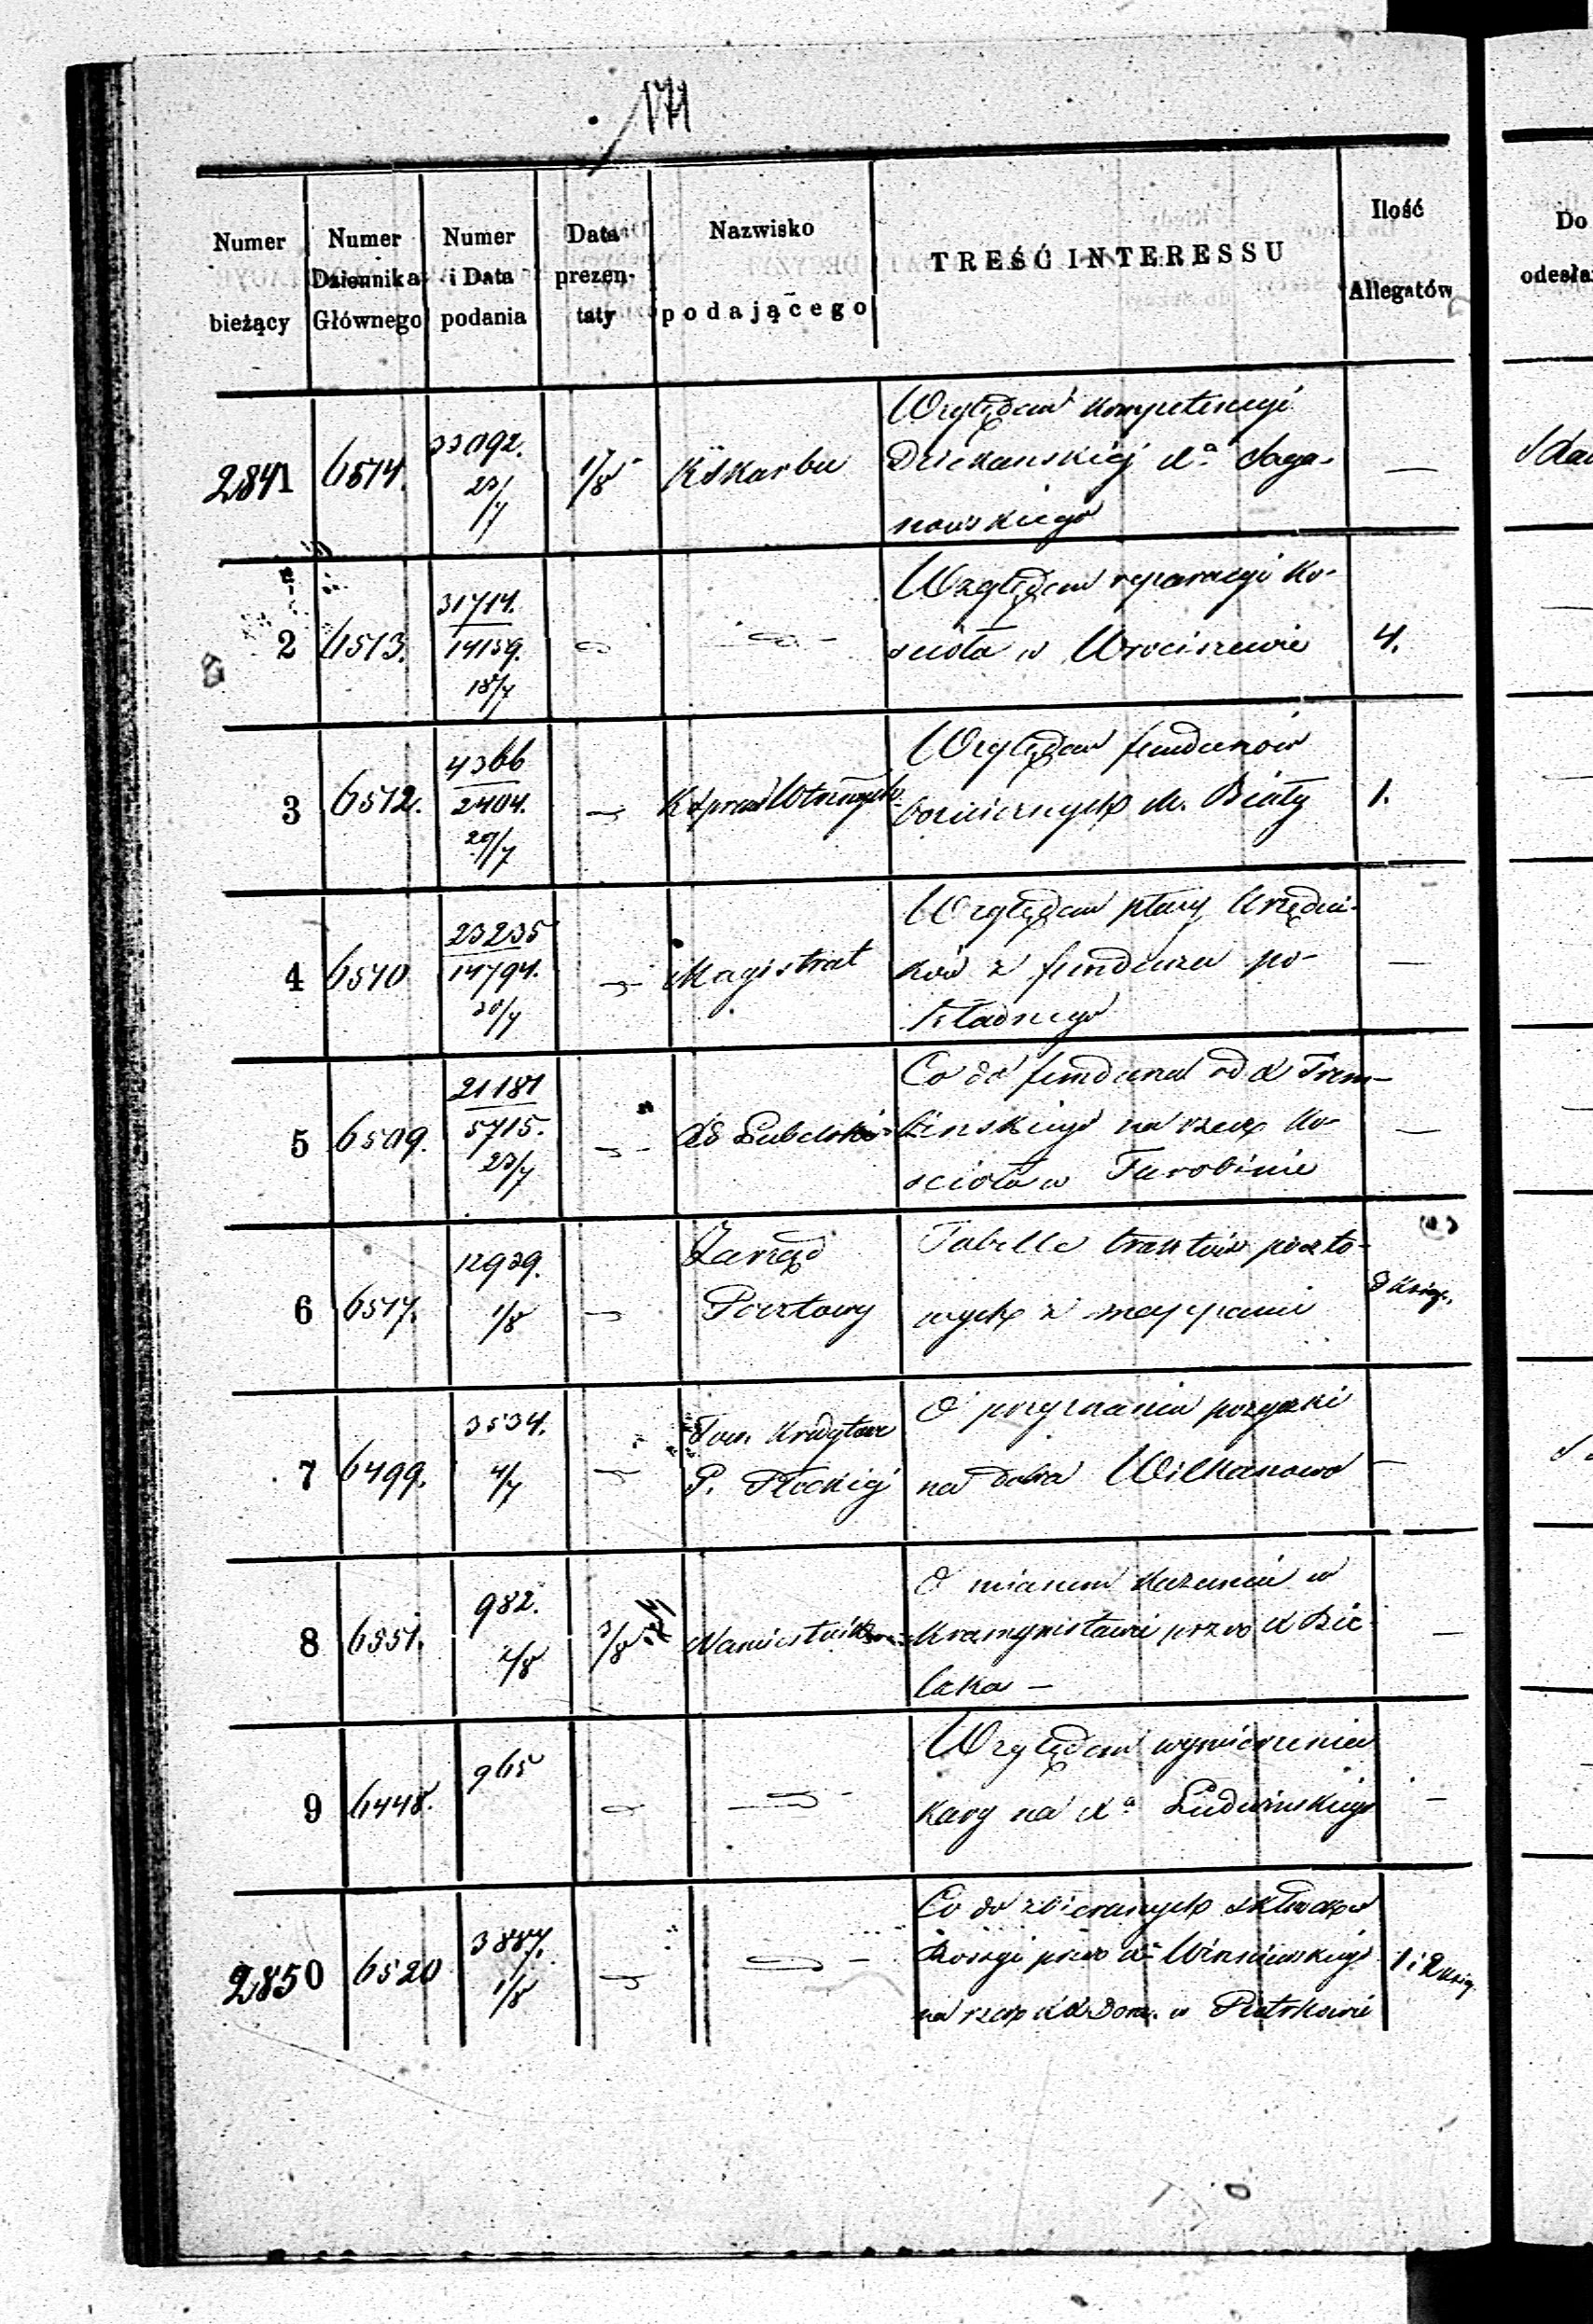 171
Numer bieżący | Numer Dziennika Głównego | Numer i Data podania | Data prezentaty | Nazwisko podającego | TREŚĆ INTERESSU | Ilość Allegatów | Do
odesła
2841 | 6514. | 33092. 23/7 | 1/8 | K Skarbu | Względem kompetencyi
Dziekańskiej Xa Saga-
nowskiego | —
2 | 6513. | 31714. 14159. 18/7 | Względem reparacyi Ko-
scioła w Wrociszewie | 4.
3 | 6512. | 4366 2404. 20/7 | K Spraw Wewnętrz | Względem funduszów
bożniczych M. Biały | 1.
4 | 6510 | 23235 14794. 20/7 | Magistrat | Względem płacy Urzędni-
ków z funduszu po-
kładnego | —
5 | 6509. | 21181 5715. 23/7 | Lubelski | Co do funduszu od X Trem-
binskiego na rzecz Ko-
scioła w Turobinie | —
6 | 6517. | 12939. 1/8 | Zarząd
Pocztowy | Tabelle traktów poczto-
wych z mappami
7 | 6499. | 3534. 4/7 | Tow. Kredytowe
P. Płockiej | O przyznaniu pożyczki
na dobra Wilkanowo | —
8 | 6551. | 982. 2/8 | 3/8 | Namiestnik | O mianem kazaniu w
Krasnymstawie przez X Bie-
laka — | —
9 | 6448. | 965 | Względem wymierzenia
kary na Xa Ludwinskiego | —
2850 | 6520 | 3887. 1/8 | Co do zbieranych składek w
Rossyi przez Xa Winniewskiego
na rzecz XX Dom. w Piotrkowie | 1 i 2 Ksią.